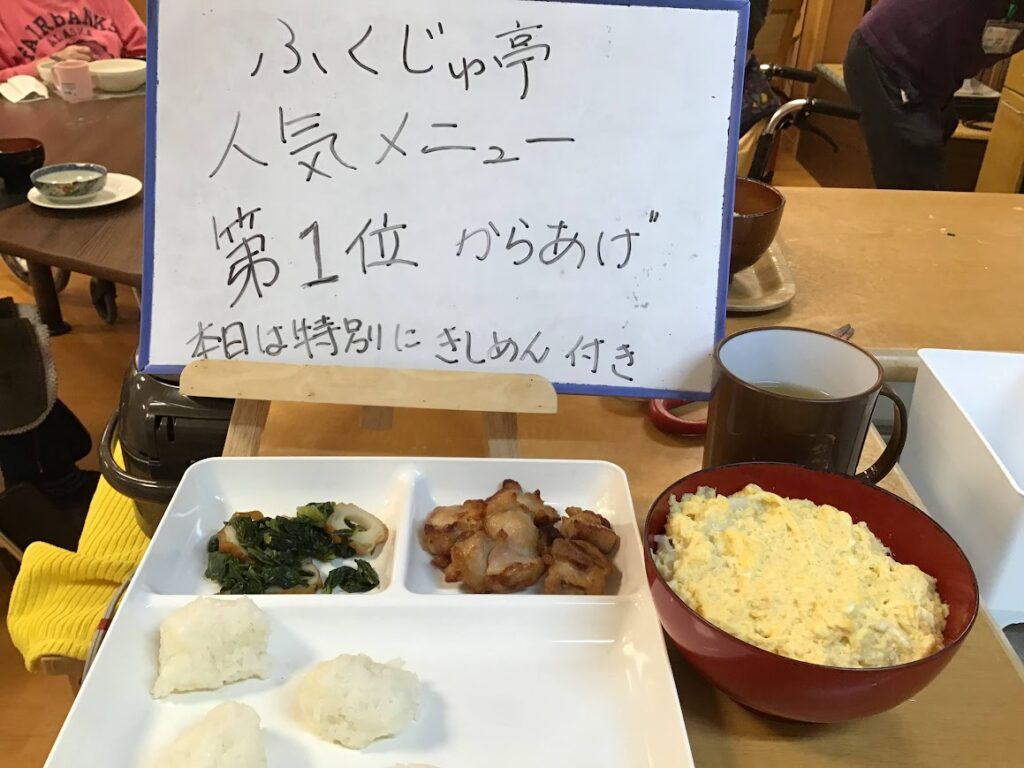 FAIRBANKS
ALASKA
ふくじゅ亭
人気メニュー
第1位 からあげ
本日は特別にきしめん付き